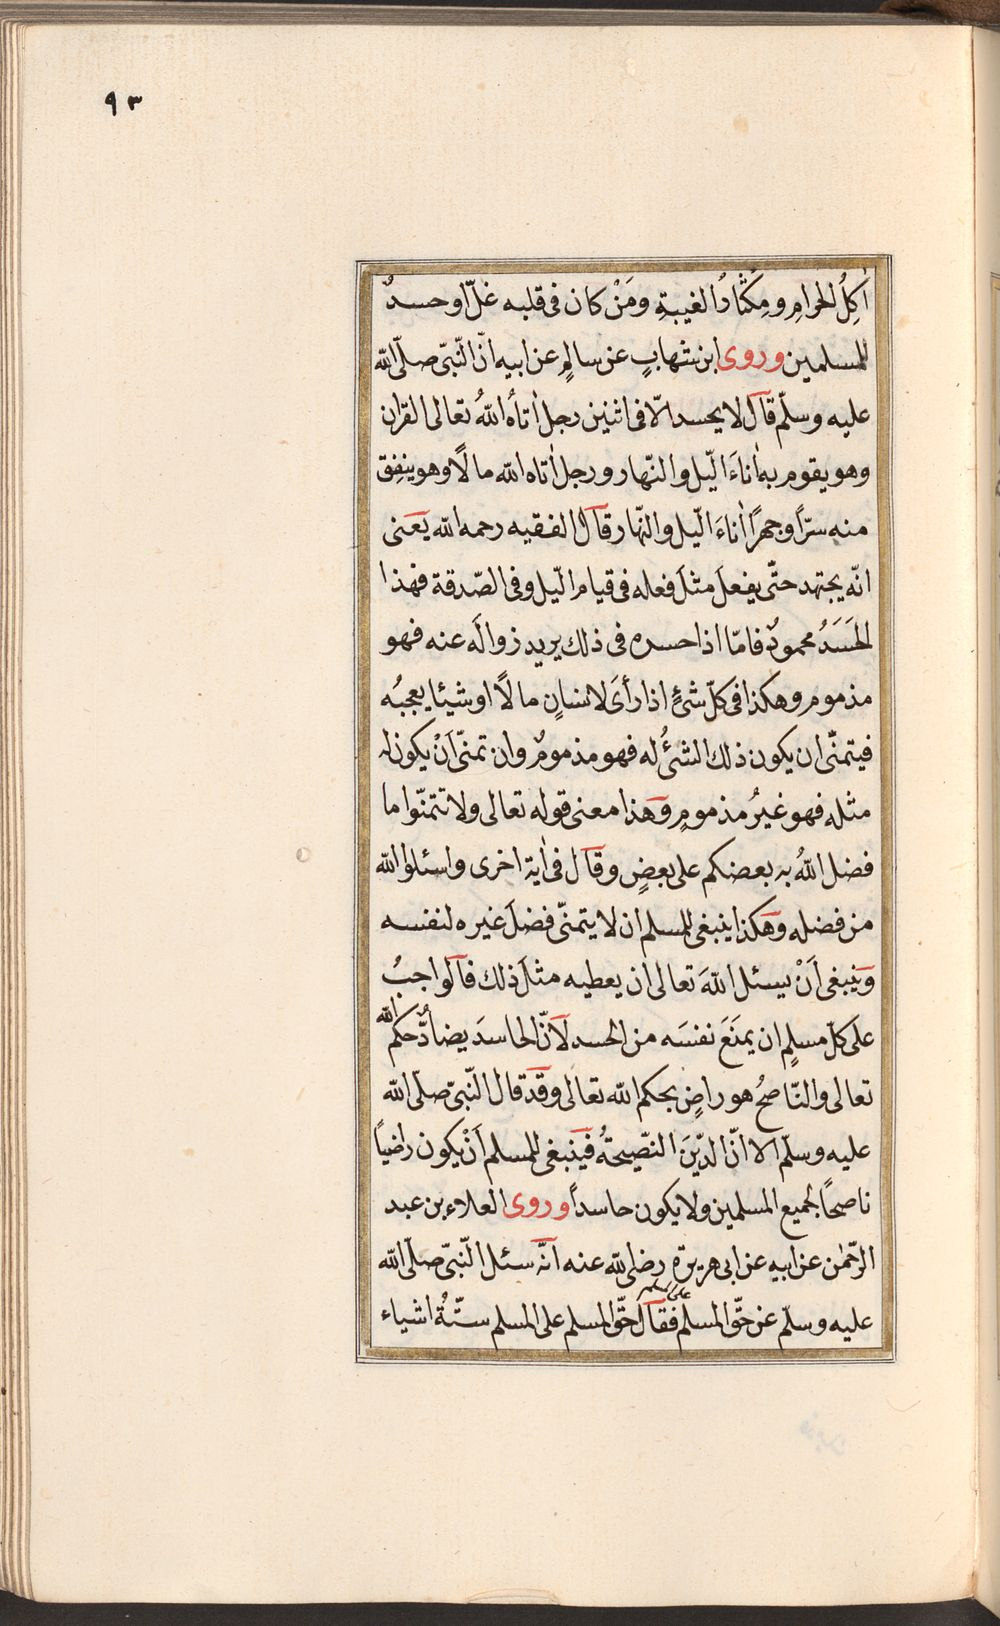 ٩٣
اٰكِلُ الحرامِ ومِكثارُ الغيبةِ ومَنْ كان فى قلبه غلّ او حسدٌ
للمسلمين وروى ابن شهابٍ عن سالمٍ عن ابيه انّ النّبىّ صلّى الله
عليه وسلّم قال لا يحسد الّا فى اثنين رجل اٰتاهُ اللهُ تعالى القرٰن
وهو يقوم به اٰناءَ الّيل والنّهار ورجل اٰتاه الله مالًا وهو ينفِق
منه سرّاً وجهراً اٰناءَ الّيل والنّهار قال الفقيه رحمه الله يعنى
انّه يجتهد حتّى يفعلَ مثلَ فعله فى قيام الّيل وفى الصّدقة فهذا
الحَسَدُ محمودٌ فامّا اذا حسده فى ذلك يريد زوالَه عنه فهو
مذموم وهكذا فى كلّ شئٍ اذا رأىَ لانسانٍ مالًا او شيئا يعجبُه
فيتمنّى ان يكون ذلك الشئُ له فهو مذمومٌ وان تمنّى اَنْ يكون له
مثله فهو غيرُ مذمومٍ وهذا معنى قوله تعالى ولا تتمنّوا ما
فضل اللهُ به بعضكم على بعضٍ وقال فى اٰية اخرى واسئلوا الله
من فضله وهكذا ينبغى للمسلم ان لا يتمنّى فضلَ غيره لنفسه
وينبغى اَنْ يسئل اللهَ تعالى ان يعطيه مثلَ ذلك فالواجبُ
على كلّ مسلمٍ ان يمنَعَ نفسَه من الحسد لانّ الحاسدَ يضادُّ حكم الله
تعالى والنّاصحُ هو راضٍ بحكم الله تعالى وقد قال النّبىّ صلّى الله
عليه وسلّم الا انّ الدّينَ النصّيحةُ فينبغى للمسلم اَنْ يكون راضياً
ناصحاً لجميع المسلمين ولا يكون حاسداً وروى العلاء بن عبد
الرّحمٰن عن ابيه عن ابى هريرة رضى الله عنه انّه سئل النّبىّ صلّى الله
عليه وسلّم عن حقّ المسلم على المسلم فقال حقّ المسلم على المسلم ستّةُ اشياء